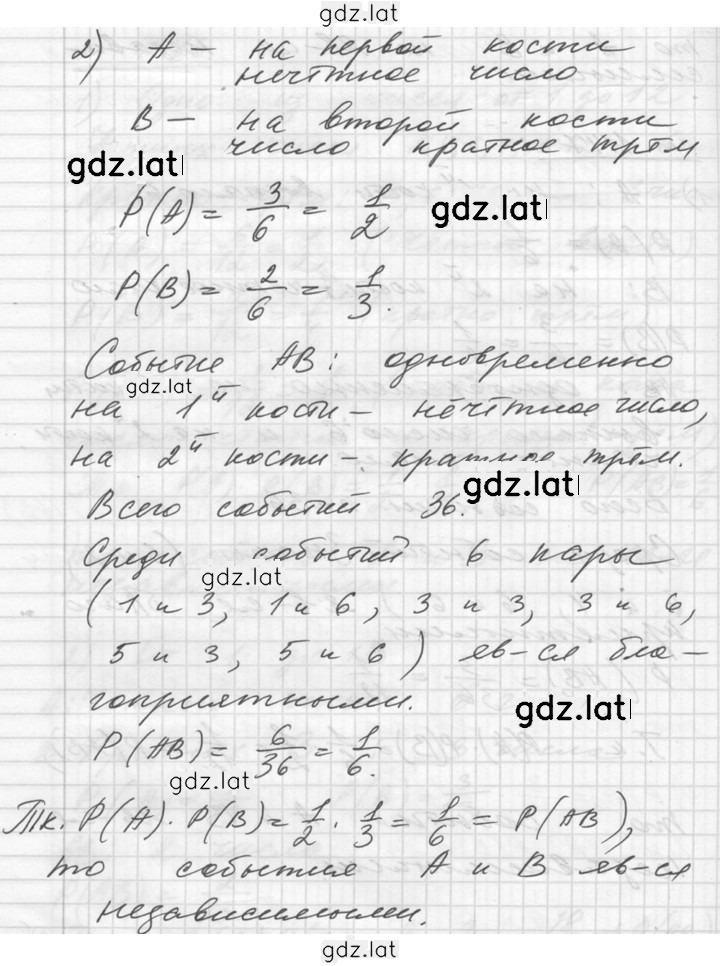 gdz.lat
2) A — на первой кости
нечётное число
B — на второй кости
число кратное трём
gdz.lat
P(A) = 3/6 = 1/2
gdz.lat
P(B) = 2/6 = 1/3.
Событие AB: одновременно
gdz.lat
на 1й кости – нечётное число,
на 2й кости – кратное трём.
gdz.lat
Всего событий 36.
Среди событий 6 пары
gdz.lat
(1 и 3, 1 и 6, 3 и 3, 3 и 6,
5 и 3, 5 и 6) яв-ся бла-
гоприятными.
gdz.lat
P(AB) = 6/36 = 1/6.
gdz.lat
Тк. P(A) · P(B) = 1/2 · 1/3 = 1/6 = P(AB),
то события A и B яв-ся
независимыми.
gdz.lat